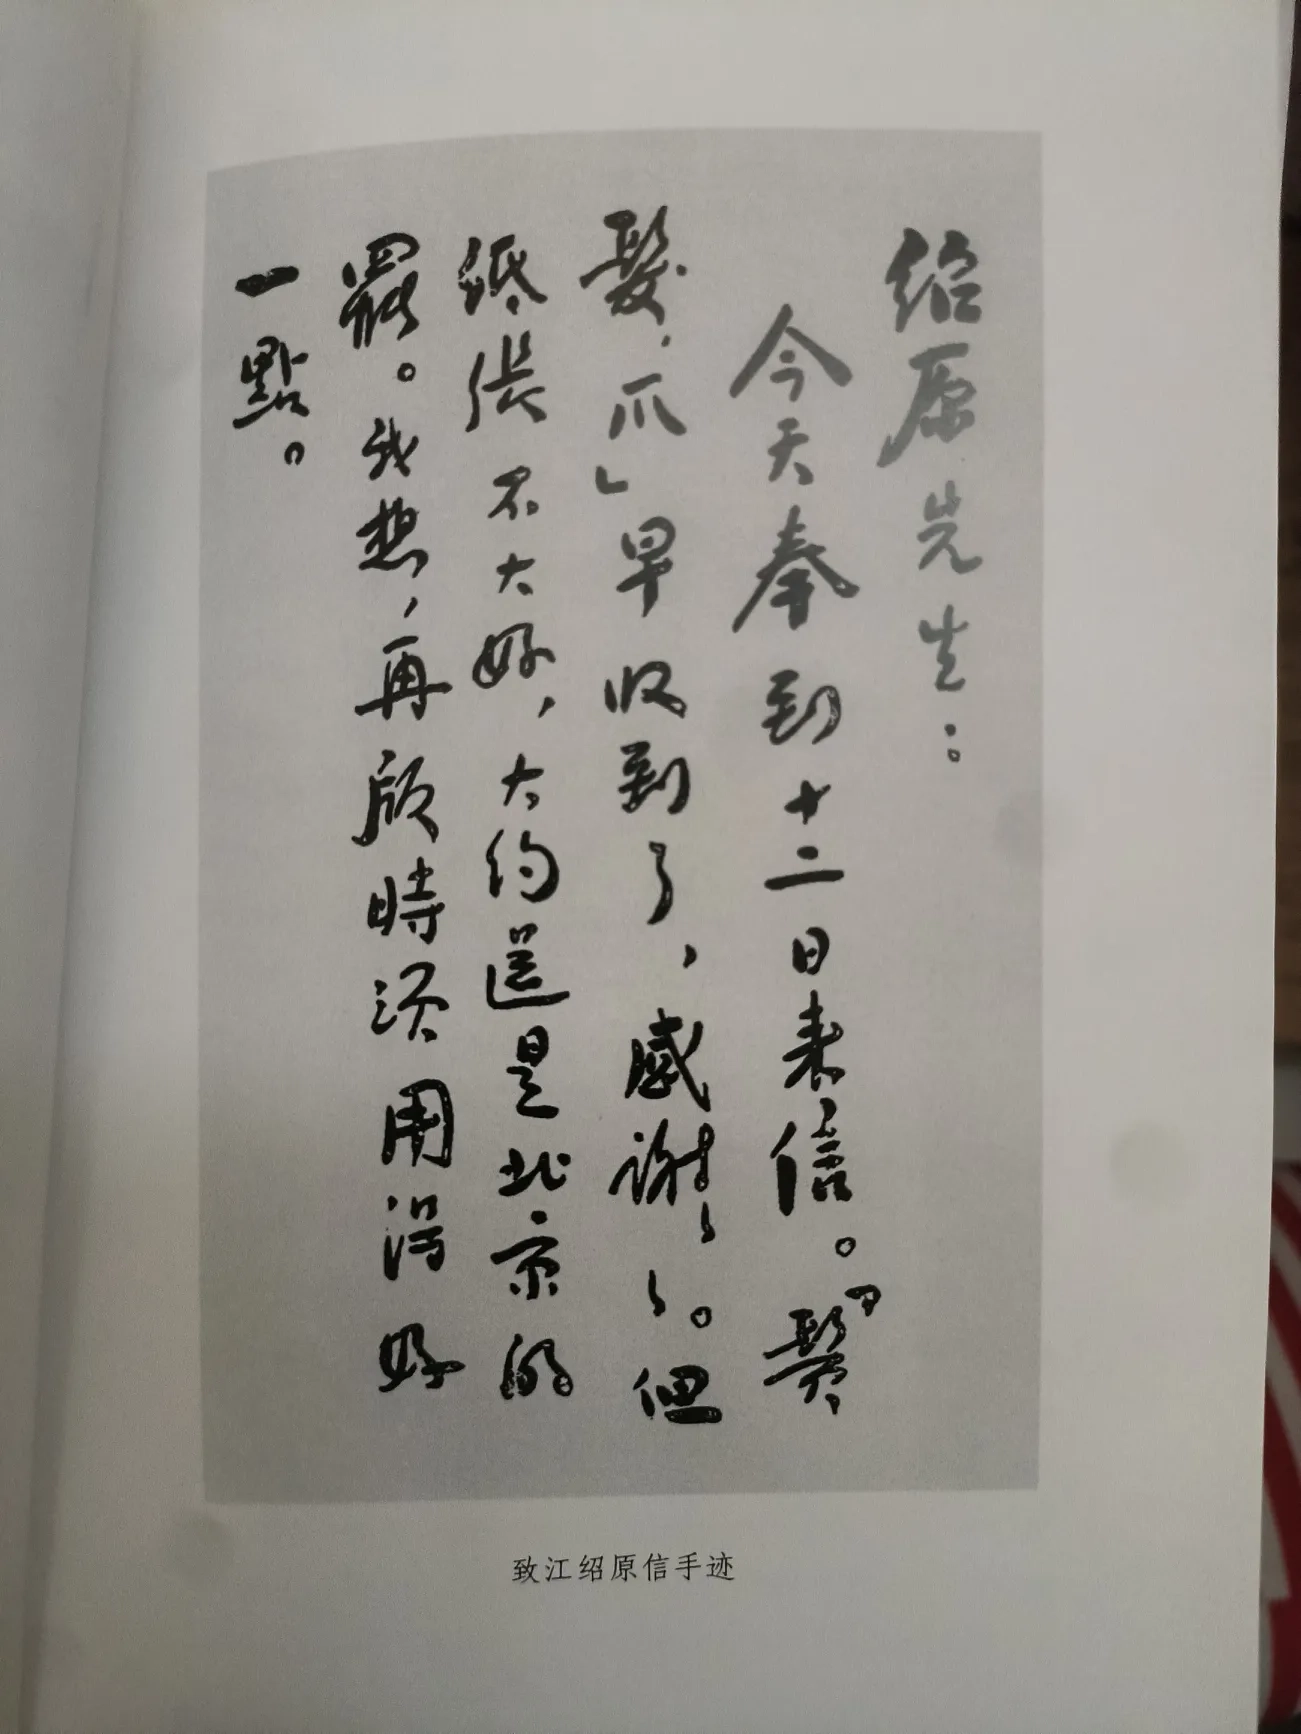 紹原先生：
今天奉到十二日來信。「鬚
髮，爪」早收到了，感謝〻〻。但
紙張不大好，大約還是北京的
罷。我想，再版時須用得好
一點。
致江绍原信手迹